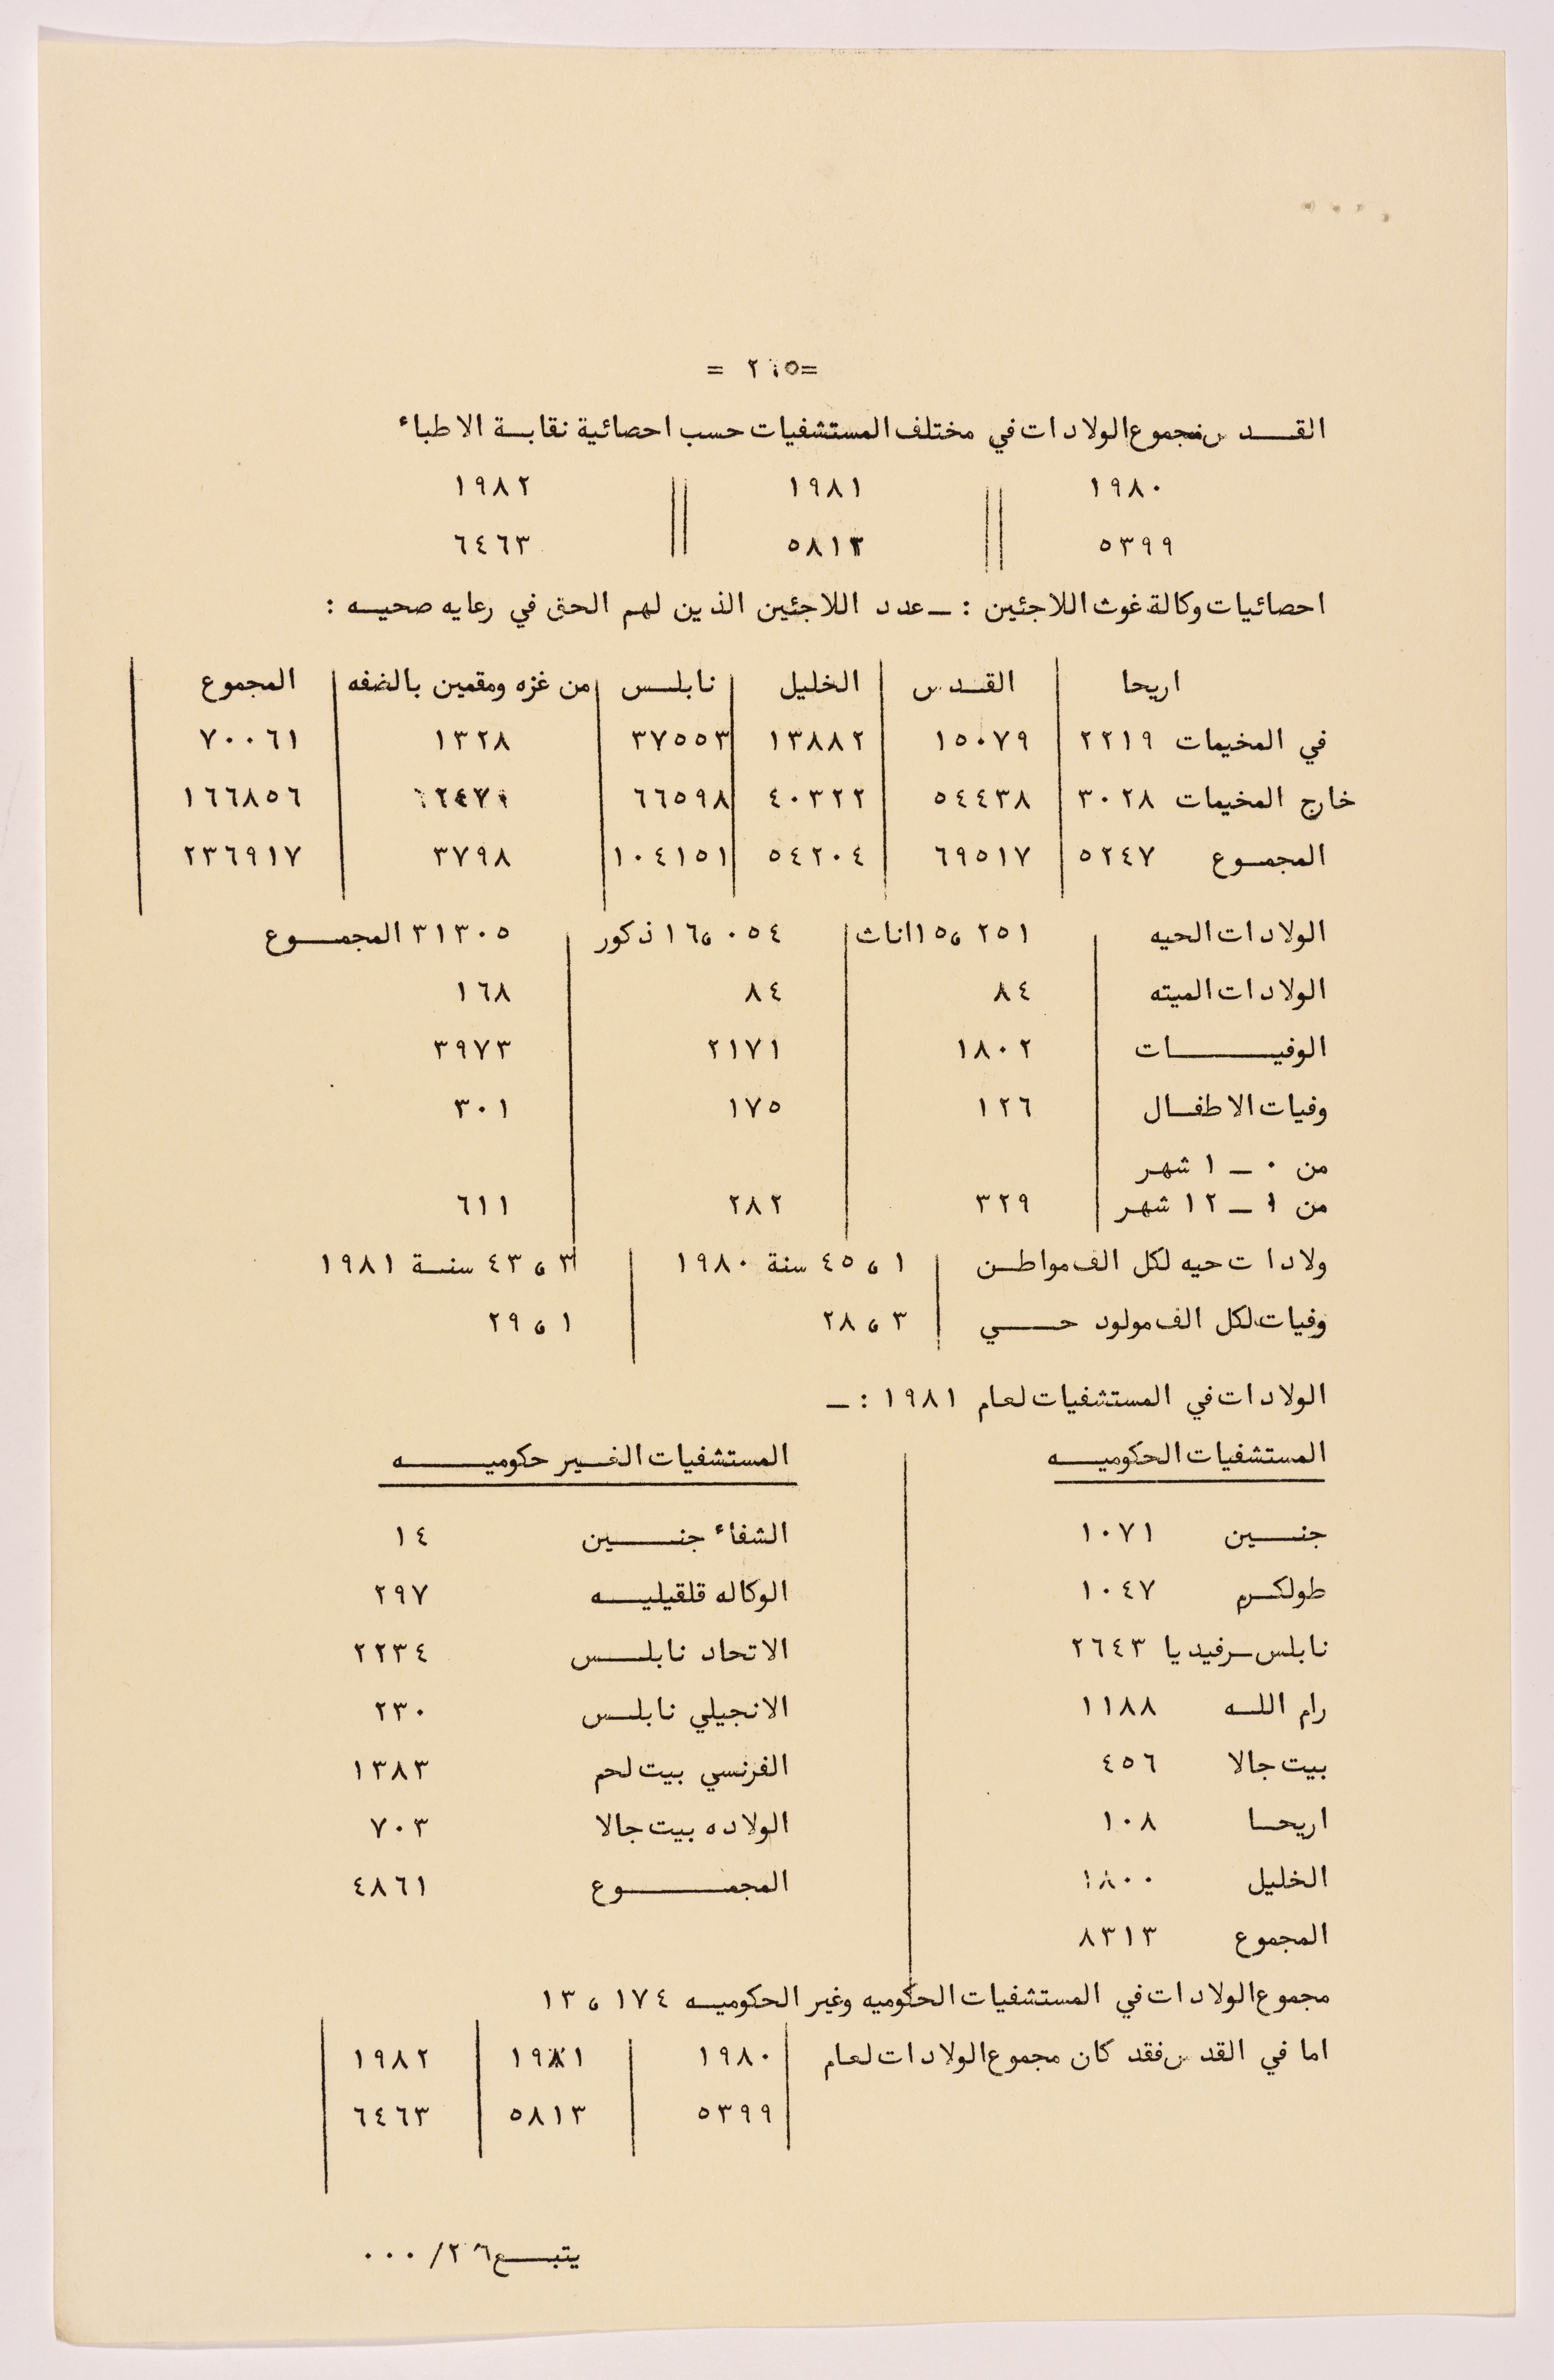 = ٢٥ =
القـــد س مجموع الولادات في مختلف المستشفيات حسب احصائية نقابـة الاطباء
١٩٨٠ ١٩٨١ ١٩٨٢
٥٣٩٩ ٥٨١٣ ٦٤٦٣
احصائيات وكالة غوث اللاجئين : ــ عدد اللاجئين الذين لهم الحق في رعايه صحيـه :
اريحا القـدس الخليل نابلـس من غزه ومقمين بالضفه المجموع
في المخيمات ٢٢١٩ ١٥٠٧٩ ١٣٨٨٢ ٣٧٥٥٣ ١٣٢٨ ٧٠٠٦١
خارج المخيمات ٣٠٢٨ ٥٤٤٣٨ ٤٠٣٢٢ ٦٦٥٩٨ ١٦٦٨٥٦
المجمـوع ٥٢٤٧ ٦٩٥١٧ ٥٤٢٠٤ ١٠٤١٥١ ٣٧٩٨ ٢٣٦٩١٧
الولادات الحيه ١٥،٢٥١ اناث ١٦،٠٥٤ ذكور ٣١٣٠٥ المجمـــوع
الولادات الميته ٨٤ ٨٤ ١٦٨
الوفيـــــات ١٨٠٢ ٢١٧١ ٣٩٧٣
وفيات الاطفـال ١٢٦ ١٧٥ ٣٠١
من ٠ ــ ١ شهر
من ١ ــ ١٢ شهر ٣٢٩ ٢٨٢ ٦١١
ولادات حيه لكل الف مواطـن ١ ، ٤٥ سنة ١٩٨٠ ٣ ، ٤٣ سنـة ١٩٨١
وفيات لكل الف مولود حـــي ٣ ، ٢٨ ١ ، ٢٩
الولادات في المستشفيات لعام ١٩٨١ : ــ
المستشفيات الحكوميـــه المستشفيات الغـير حكوميــــه
جنـــين ١٠٧١ الشفاء جنـــين ١٤
طولكـرم ١٠٤٧ الوكاله قلقيليـــه ٢٩٧
نابلس ـ رفيديا ٢٦٤٣ الاتحاد نابلــس ٢٢٣٤
رام اللـه ١١٨٨ الانجيلي نابلـس ٢٣٠
بيت جالا ٤٥٦ الفرنسي بيت لحم ١٣٨٣
اريحـا ١٠٨ الولاده بيت جالا ٧٠٣
الخليل ١٨٠٠ المجمــــوع ٤٨٦١
المجموع ٨٣١٣
مجموع الولادات في المستشفيات الحكوميه وغير الحكوميـه ١٧٤ ، ١٣
اما في القدس فقد كان مجموع الولادات لعام ١٩٨٠ ١٩٨١ ١٩٨٢
٥٣٩٩ ٥٨١٣ ٦٤٦٣
يتبــع ٢٦/ ٠٠٠